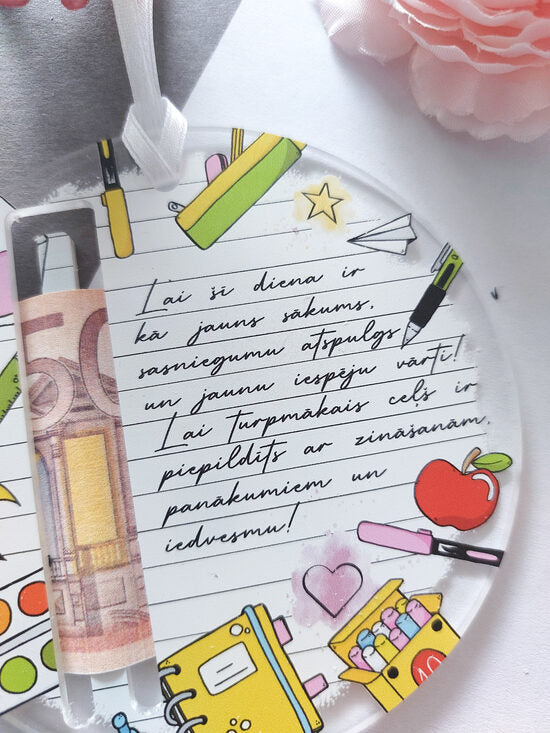 Lai šī diena ir
kā jauns sākums,
sasniegumu atspulgs
un jaunu iespēju vārti!
Lai turpmākais ceļš ir
piepildīts ar zināšanām,
panākumiem un
iedvesmu!
50
10